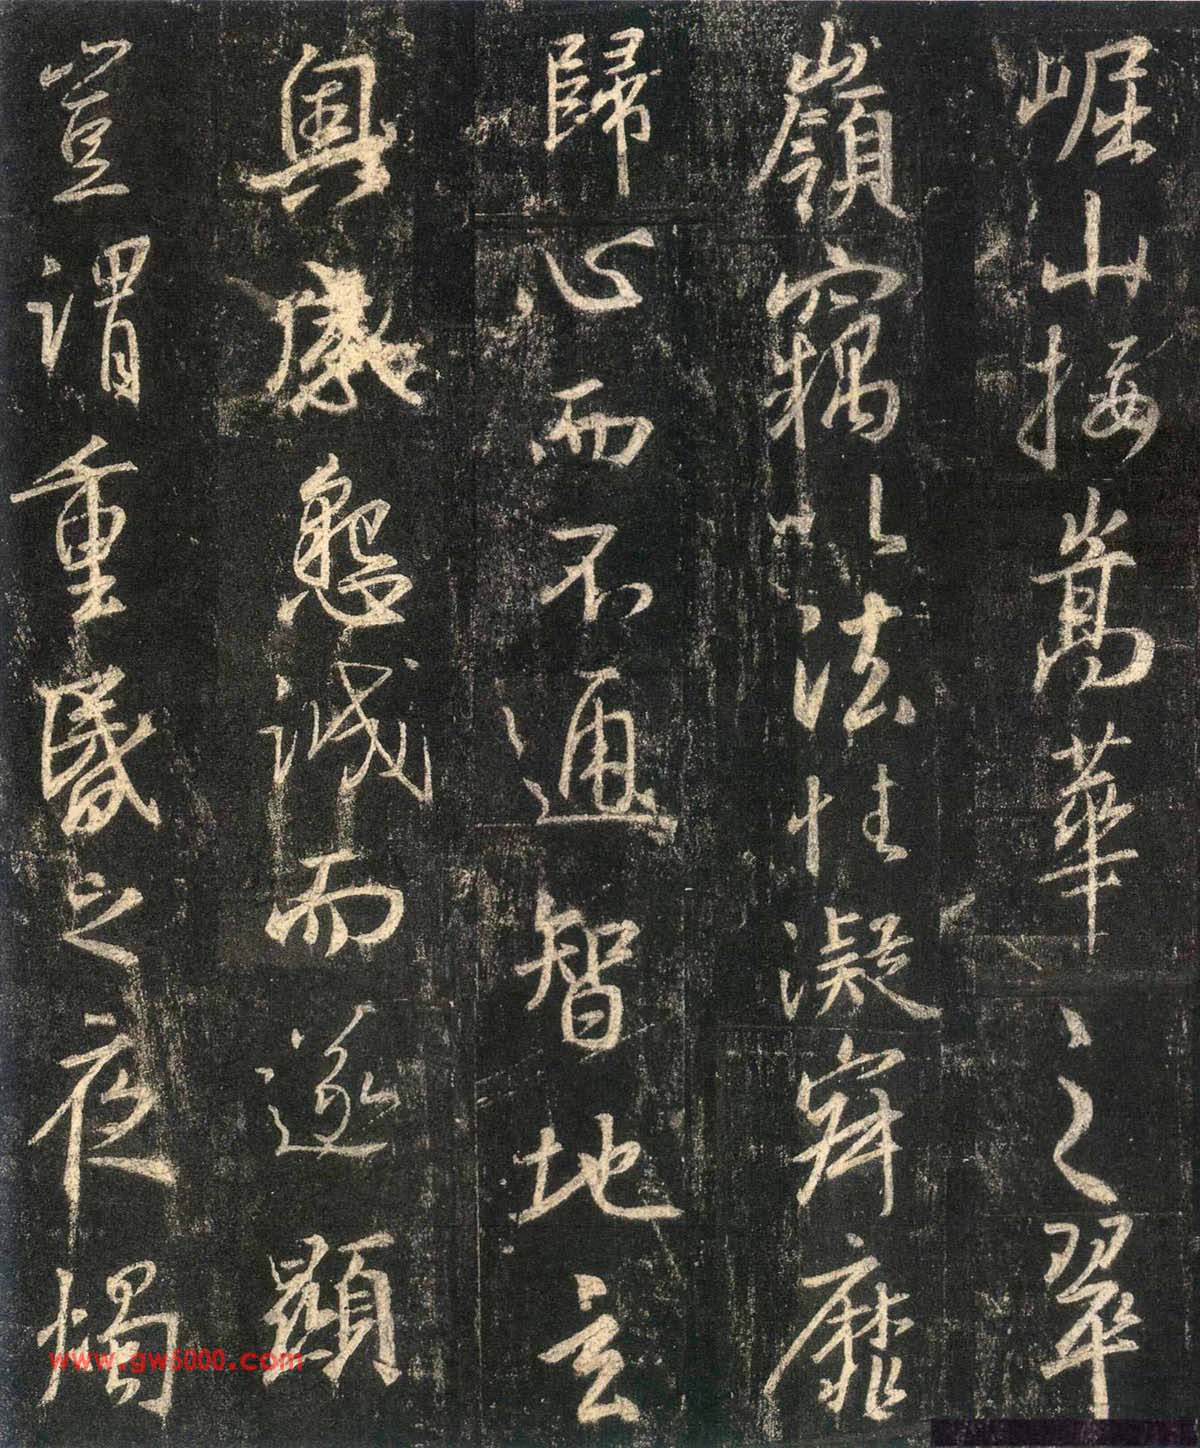 崛山接嵩華之翠
嶺竊以法性凝寂靡
歸心而不通智地玄
奧感懇誠而遂顯
豈謂重昏之夜燭
www.gw5000.com